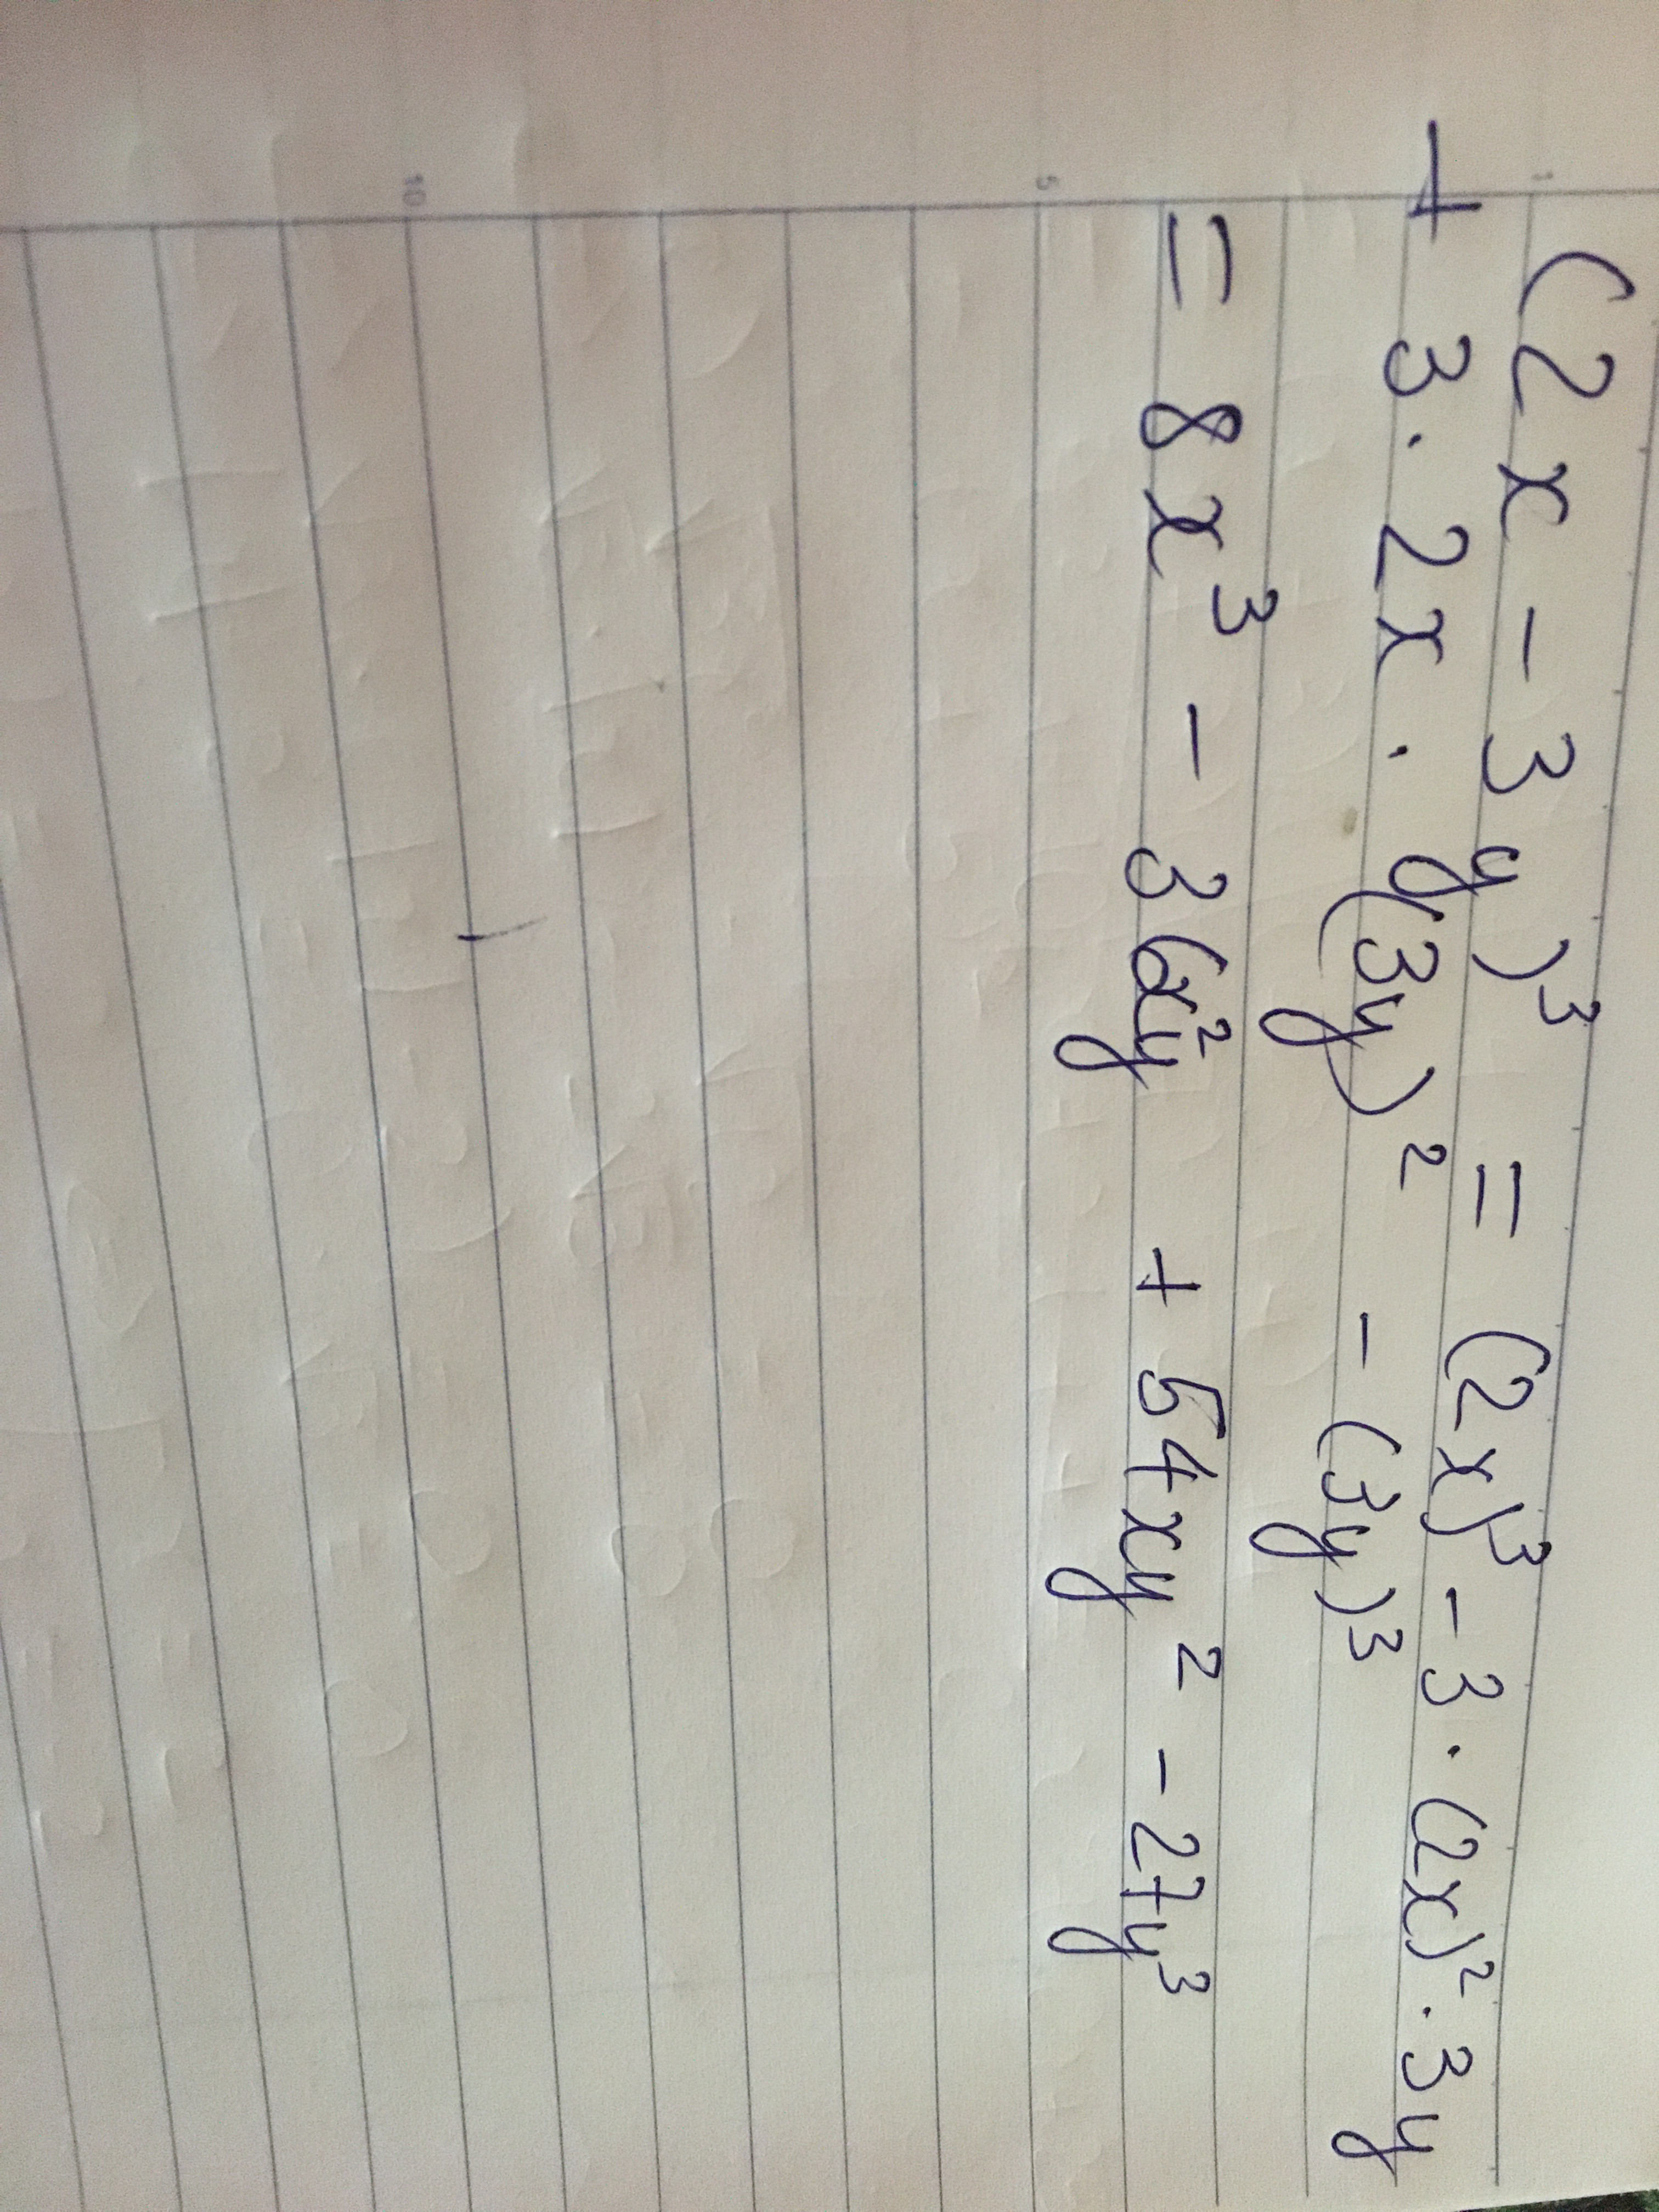 (2x - 3y)³ = (2x)³ - 3 · (2x)² · 3y
+ 3 · 2x · (3y)² - (3y)³
= 8x³ - 36x²y + 54xy² - 27y³
1
5
10